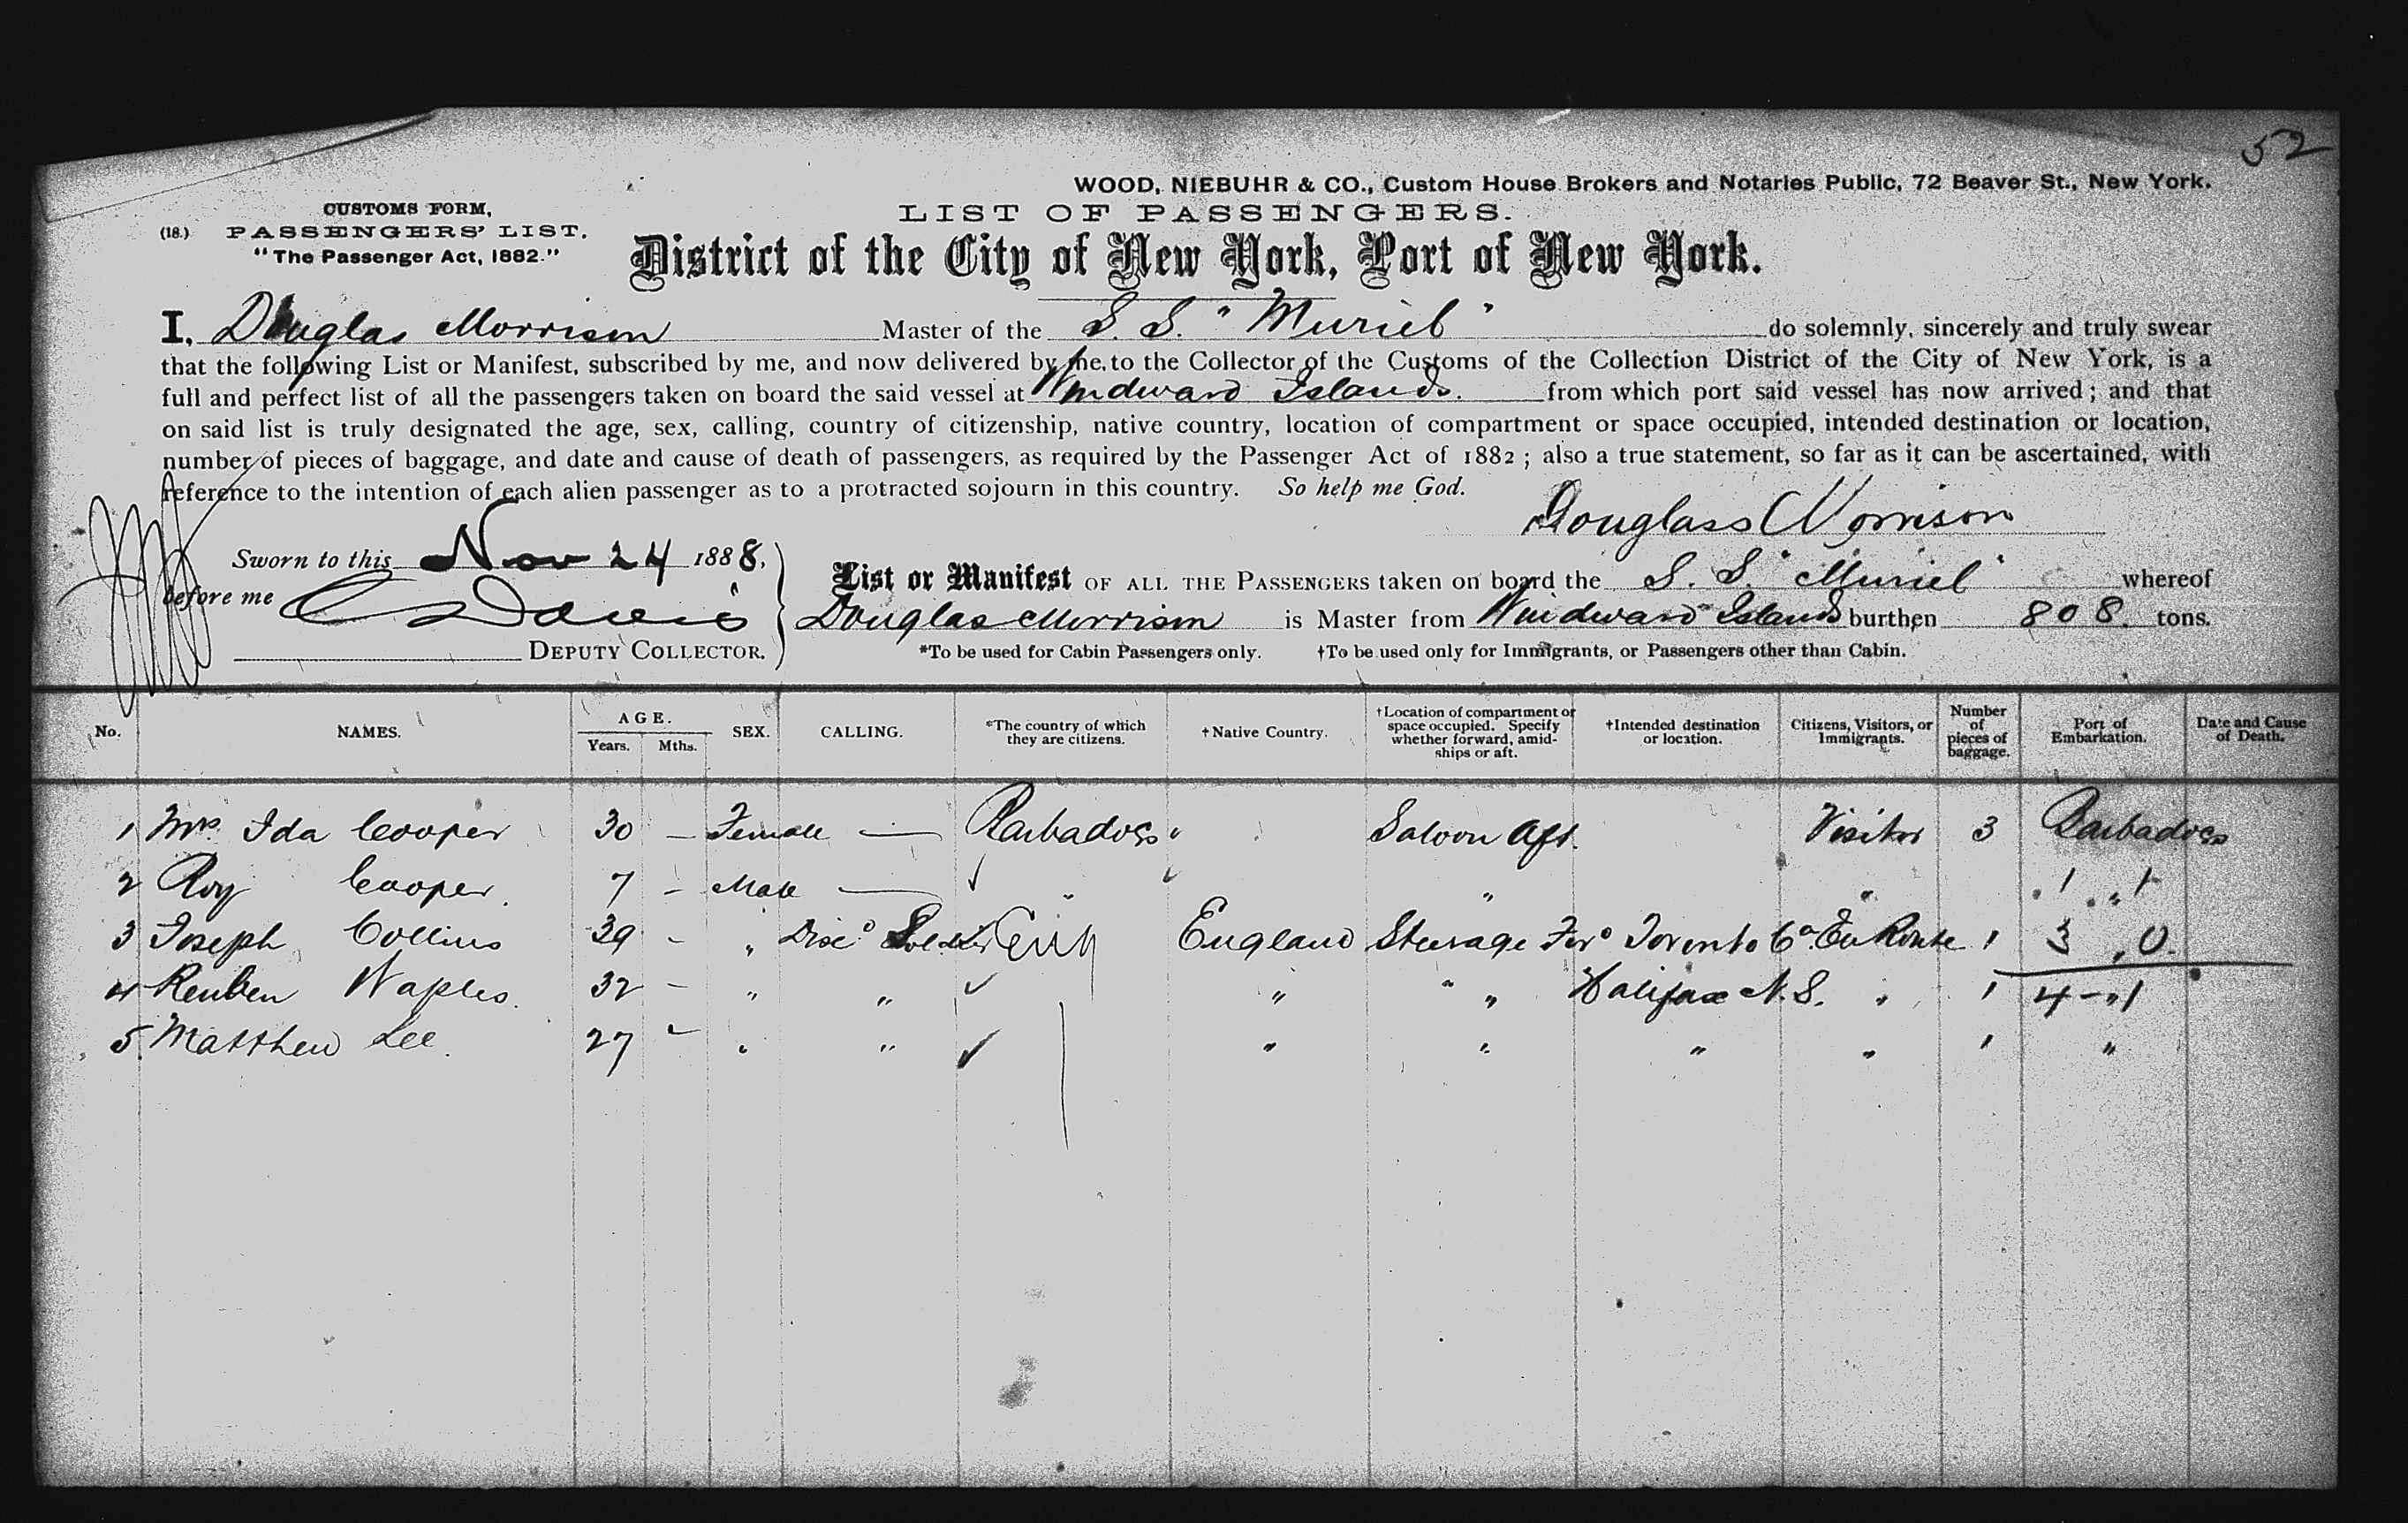 52
WOOD, NIEBUHR & CO., Custom House Brokers and Notaries Public, 72 Beaver St., New York.
CUSTOMS FORM,
(18.) PASSENGERS' LIST.
"The Passenger Act, 1882."
LIST OF PASSENGERS.
District of the City of New York, Port of New York.
I, Douglas Morrison Master of the S. S. "Muriel" do solemnly, sincerely and truly swear
that the following List or Manifest, subscribed by me, and now delivered by me, to the Collector of the Customs of the Collection District of the City of New York, is a
full and perfect list of all the passengers taken on board the said vessel at Windward Islands. from which port said vessel has now arrived; and that
on said list is truly designated the age, sex, calling, country of citizenship, native country, location of compartment or space occupied, intended destination or location,
number of pieces of baggage, and date and cause of death of passengers, as required by the Passenger Act of 1882; also a true statement, so far as it can be ascertained, with
reference to the intention of each alien passenger as to a protracted sojourn in this country. So help me God.
Douglass Morrison
Sworn to this Nov 24 1888,
before me C Davis
DEPUTY COLLECTOR.
List or Manifest OF ALL THE PASSENGERS taken on board the S. S. "Muriel" whereof
Douglas Morrison is Master from Windward Islands burthen 808. tons.
*To be used for Cabin Passengers only. †To be used only for Immigrants, or Passengers other than Cabin.
No. NAMES. AGE. Years. Mths. SEX. CALLING. *The country of which they are citizens. †Native Country. †Location of compartment or space occupied. Specify whether forward, amidships or aft. †Intended destination or location. Citizens, Visitors, or Immigrants. Number of pieces of baggage. Port of Embarkation. Date and Cause of Death.
1 Mrs Ida Cooper 30 — Female — Barbadoes " Saloon Aft. Visitor 3 Barbadoes
2 Roy Cooper 7 - Male — " " " 1 " 1
3 Joseph Collins 39 - " Disc^d Soldier England Steerage For^d Toronto C^a En Route 1 3 " 0
4 Reuben Waples. 32 - " " " " " Halifax N.S. " 1 4 - " 1
5. Matthew Lee. 27 - " " " " " " 1 "